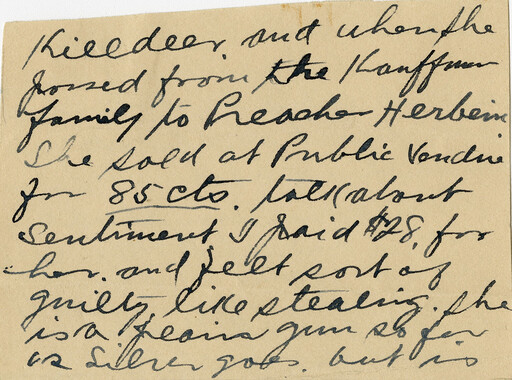 Killdeer, and when she
passed from the Kauffman
family to Preacher Herbein
She sold at Public Vendue
for 85 cts. talk about
sentiment, I paid $28. for
her. and felt sort of
guilty, like stealing. She
is a plain gun so far
as silver goes. but is